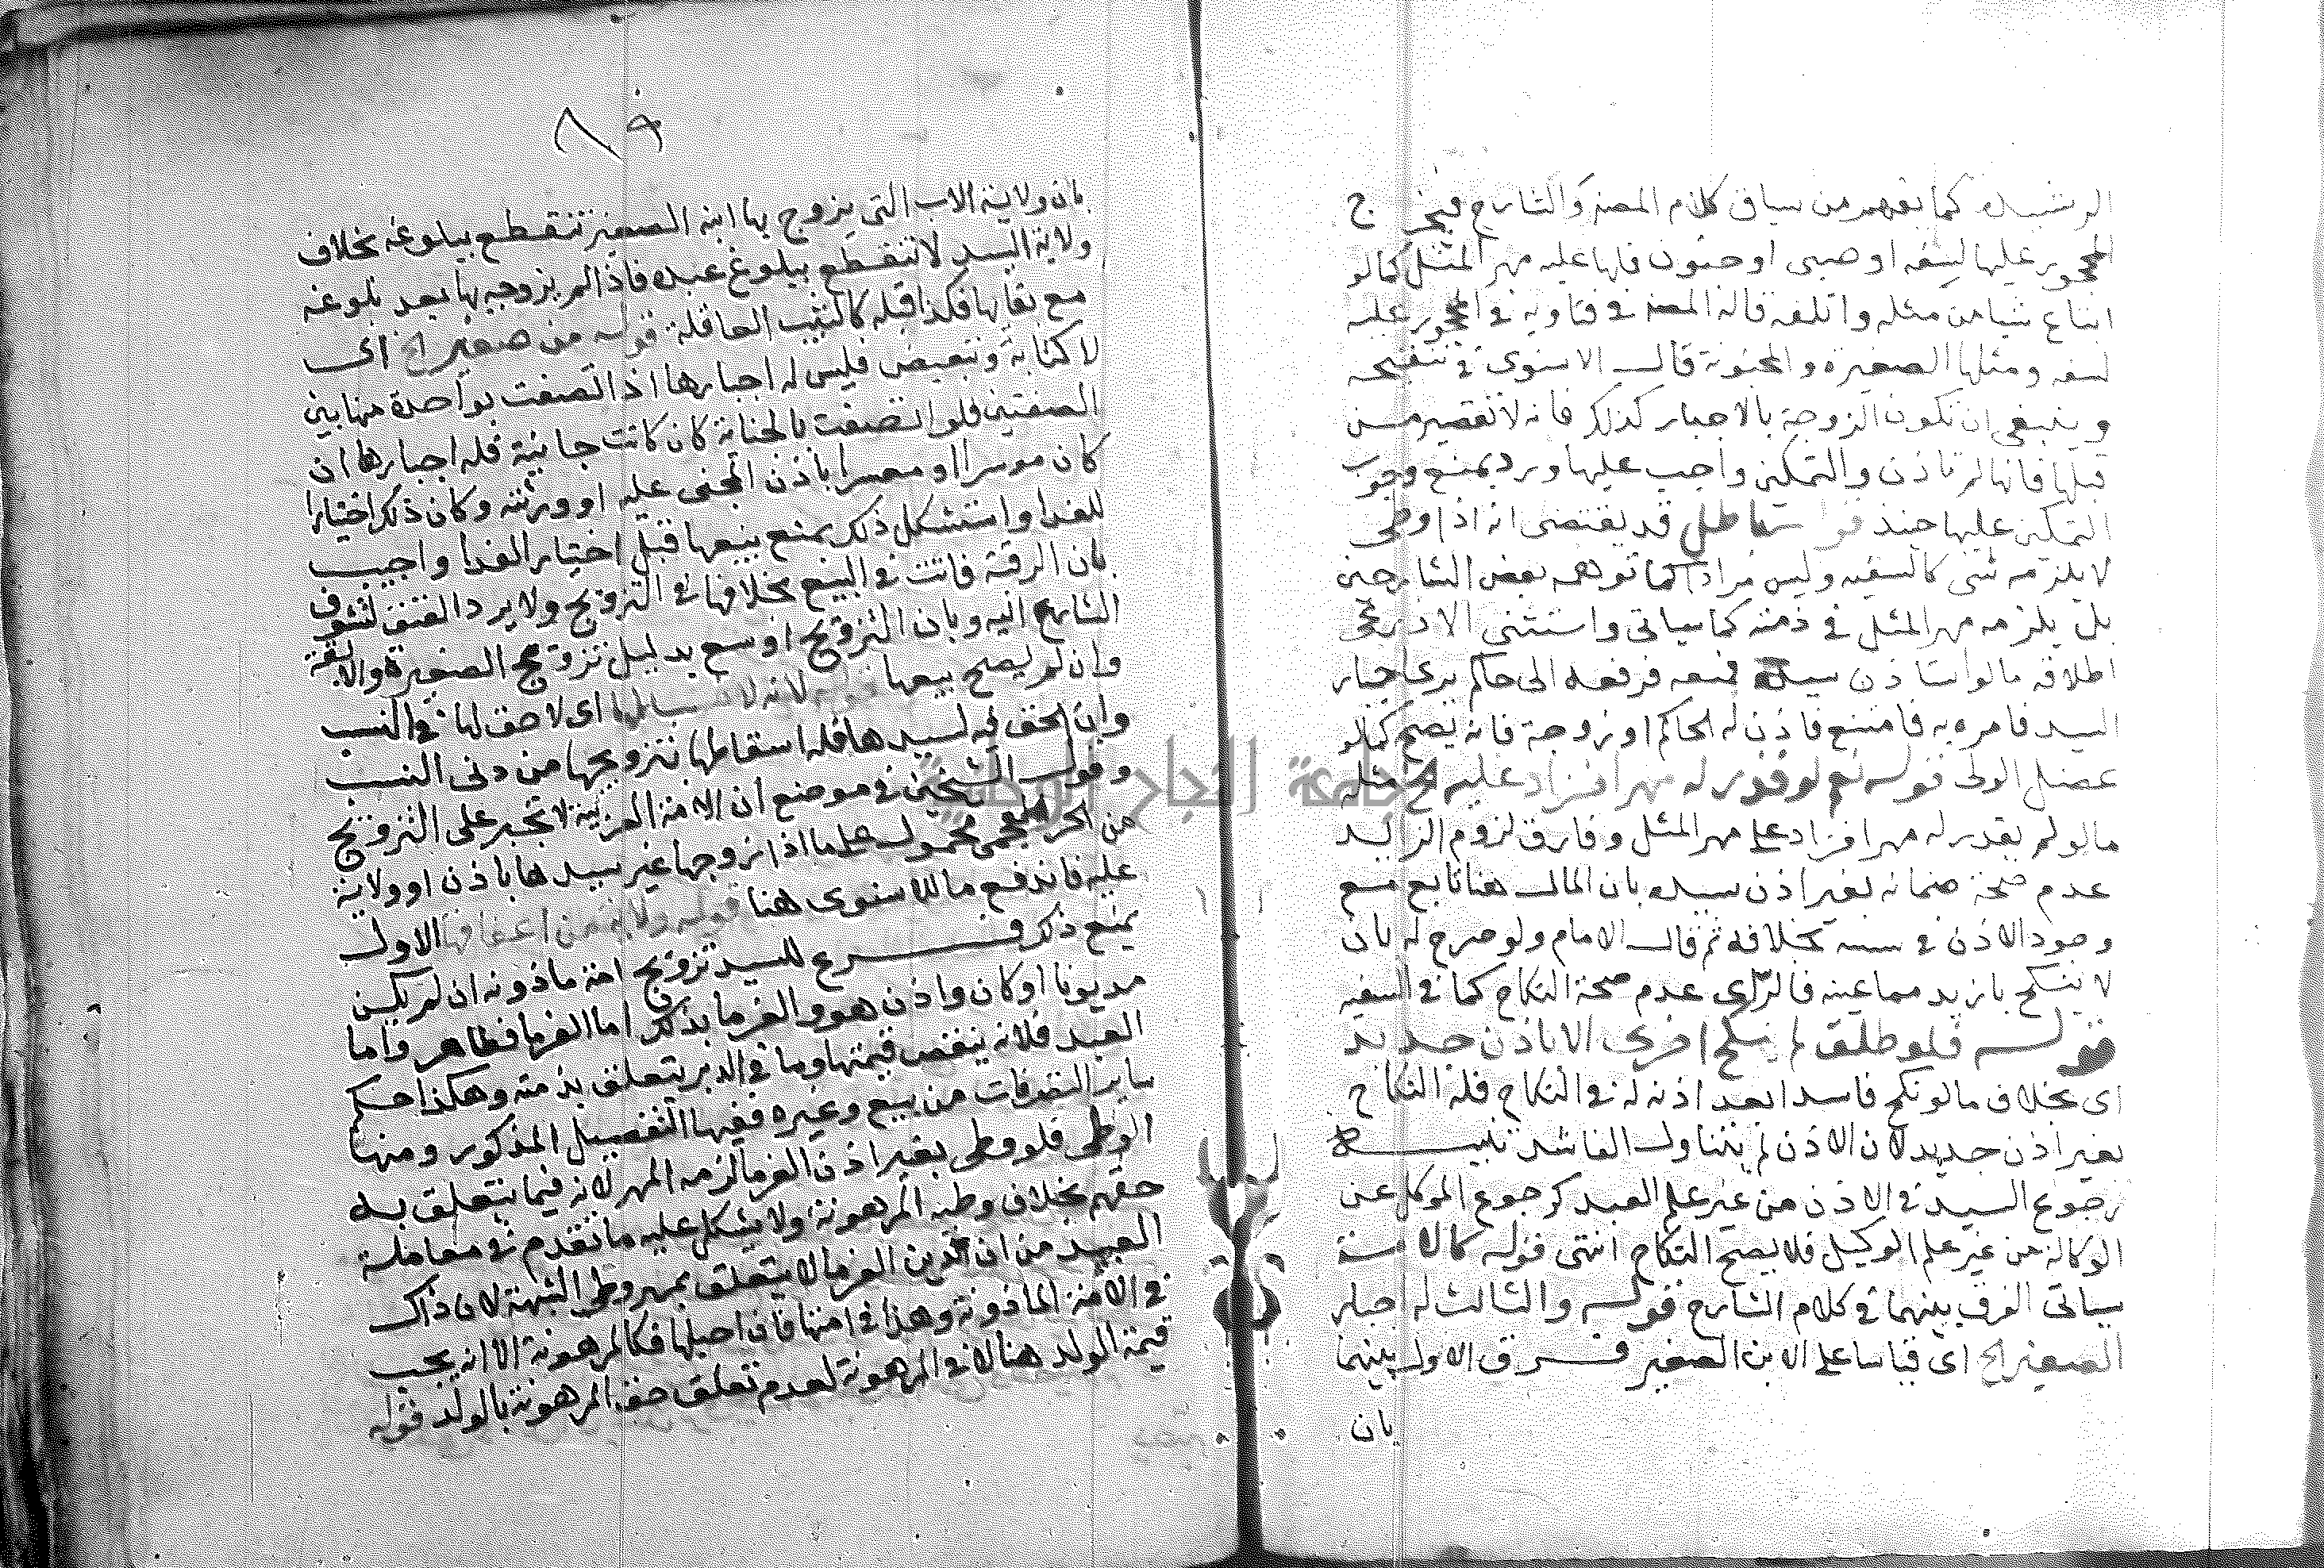 الرشيده كما يفهم من سياق كلام المصنف والشارح فيخرج
المحجور عليها لسفه او صبى او جنون فلها عليه مهر المثل كما لو
ابتاع شيا من مثله واتلفه قاله المصنف في فتاويه في المحجور عليه
لسفه ومثلها الصغيرة والمجنونة قال الاسنوى في تنقيحه
وينبغى ان تكون الزوجة بالاجبار كذلك فانه لا تقصير من
قبلها فانها لم تاذن والتمكين واجب عليها ويرد بمنع وجوب
التمكين عليها حينئذ قوله باطل قد يقتضى انه اذا وطى
لا يلزمه شى كالسفيه وليس مرادا كما توهمه بعض الشارحين
بل يلزمه مهر المثل في ذمته كما سياتى واستثنى الاذرعى
اطلاقه ما لو استاذن سيده فمنعه فرفعه الى حاكم يرى اجبار
السيد فامره به فامتنع فاذن له الحاكم او زوجه فانه يصح كما لو
عضل الولى قوله نعم لو قدر له مهرا فزاد عليه الخ مثله
ما لو لم يقدر له مهرا فزاد على مهر المثل وفارق لزوم الزايد
عدم صحة ضمانه بغير اذن سيده بان المال هنا تابع مع
وجود الاذن في سببه بخلافه ثم قال الامام ولو صرح له بان
لا ينكح بازيد مما عينه فالراى عدم صحة النكاح كما في السفيه
قوله فلو طلق لم ينكح اخرى الا باذن جديد
اى بخلاف ما لو نكح فاسدا بعد اذنه له في النكاح فله النكاح
بغير اذن جديد لان الاذن لم يتناول الفاسد تنبيه
رجوع السيد في الاذن من غير علم العبد كرجوع الموكل عن
الوكالة من غير علم الوكيل فلا يصح النكاح انتهى قوله كالامة
سياتى الفرق بينهما في كلام الشارح قوله والثالث له اجبار
الصغير الخ اى قياسا على الابن الصغير فرق الاول بينهما
بان
٨٩
بان ولاية الاب التى يزوج بها ابنه الصغير تنقطع ببلوغه بخلاف
ولاية السيد لا تنقطع ببلوغ عبده فاذا لم يزوجه بها بعد بلوغه
مع بقايها فكذا قبله كالثيب العاقلة قوله من صغير الخ اى
لا كتابة وتبعيض فليس له اجبارها اذا اتصفت بواحدة من هاتين
الصفتين فلو اتصفت بالجناية كان كانت جانية فله اجبارها ان
كان موسرا او معسرا باذن المجنى عليه او ورثته وكان ذلك اختيارا
للفدا واستشكل ذلك بمنع بيعها قبل اختيار الفدا واجيب
بان الرقبة فاتت في البيع بخلافها في التزويج ولا يرد العتق لتشوف
الشارع اليه وبان التزويج اوسع بدليل تزويج الصغيرة والابقة
وان لم يصح بيعها قوله لانه لا نسب لها اى لا حق لها في النسب
وان الحق فيه لسيدها فله اسقاطها بتزويجها من دنى النسب
وقول الشيخين في موضع ان الامة العربية لا تجبر على التزويج
من الحر العجمى محمول على ما اذا زوجها غير سيدها باذن او ولاية
عليه فاندفع ما للاسنوى هنا قوله ولانه من اعفافها الاول
يمنع ذكر فرع للسيد تزويج امة ماذونه ان لم يكن
مديونا او كان واذن هو والغرما بذلك اما الغرما فظاهر واما
العبد فلانه ينقص قيمتها وما في الدين يتعلق بذمته وهكذا حكم
ساير التصرفات من بيع وغيره ففيها التفصيل المذكور ومنها
الوطى فلو وطى بغير اذن الغرما لزمه المهر لانه فيما يتعلق به
حقهم بخلاف وطيه المرهونة ولا يشكل عليه ما تقدم في معاملة
العبيد من ان دين الغرما لا يتعلق بمهر وطى الشبهة لان ذاك
في الامة الماذونة وهذا في امتها فان احبلها فكالمرهونة الا انه يجب
قيمة الولد هنا لا في المرهونة لعدم تعلق حق المرهونة بالولد قوله
جامعة النجاح الوطنية